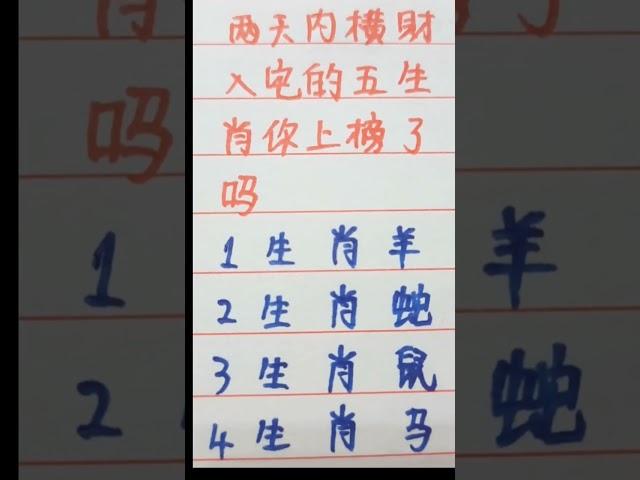 两天内横财
入宅的五生
肖你上榜了
吗
1 生肖羊
2 生肖蛇
3 生肖鼠
4 生肖马